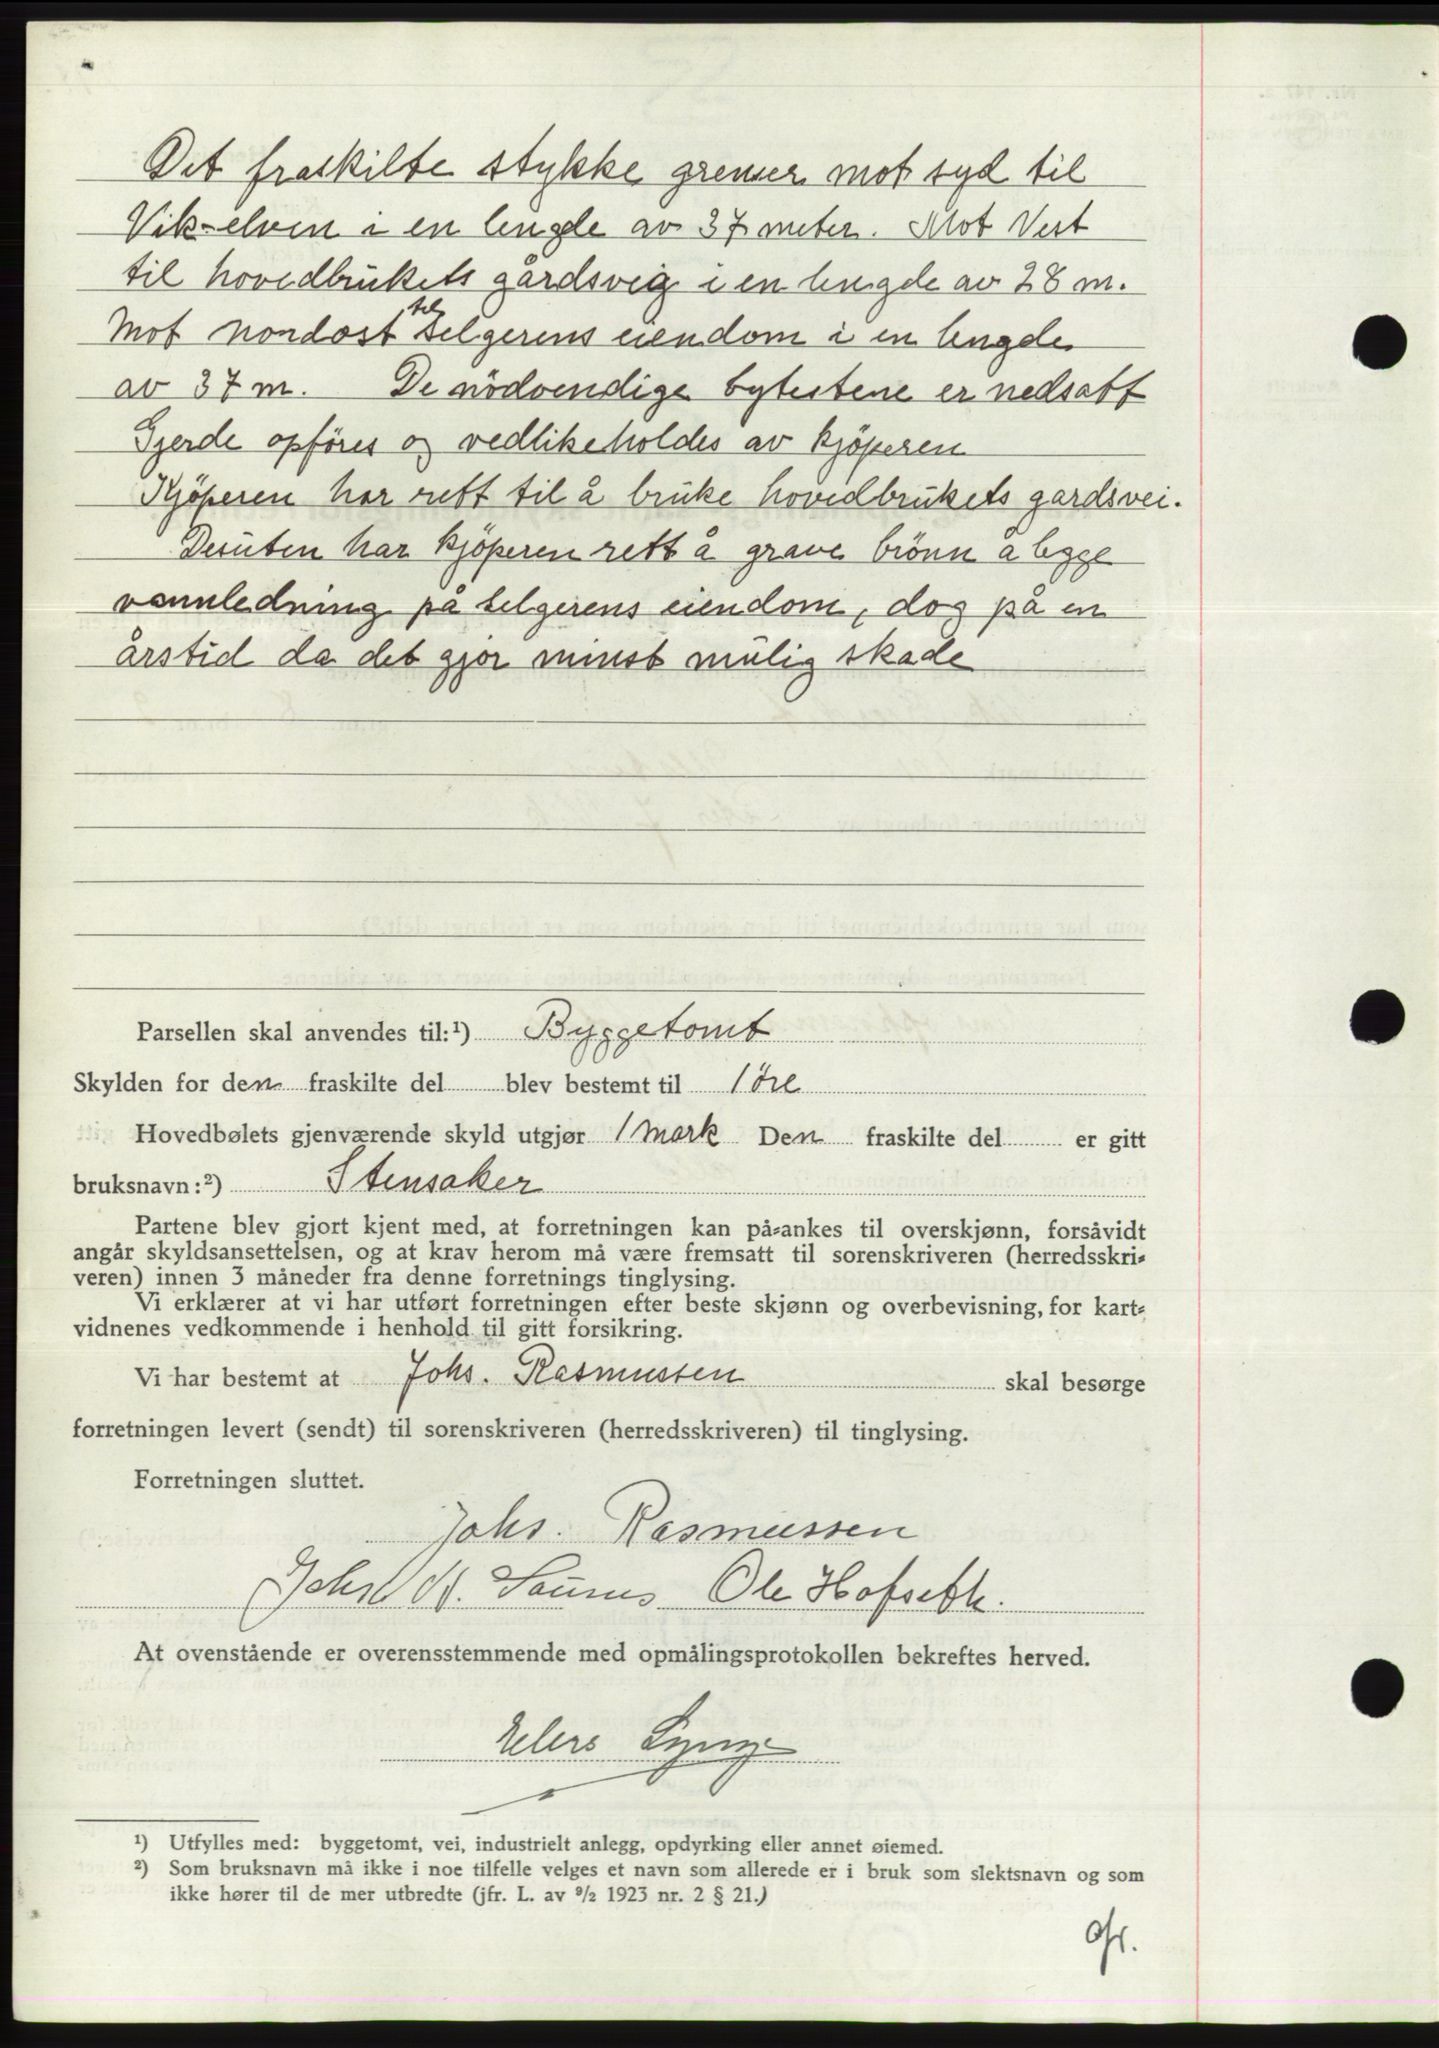 Det fraskilte stykke grenser mot syd til
Vik-elven i en lengde av 37 meter. Mot Vest
til hovedbrukets gårdsveig i en lengde av 28 m.
Mot nordost til selgerens eiendom i en lengde
av 37 m. De nödvendige bytestene er nedsatt
Gjerde opföres og vedlikeholdes av kjöperen
Kjöperen har rett til å bruke hovedbrukets gardsvei.
Desuten har kjöperen rett å grave brönn å legge
vannledning på selgerens eiendom, dog på en
årstid da det gjör minst mulig skade
Parsellen skal anvendes til:¹) Byggetomt
Skylden for den fraskilte del blev bestemt til 1 øre
Hovedbølets gjenværende skyld utgjør 1 mark Den fraskilte del er gitt
bruksnavn:²) Stensaker
Partene blev gjort kjent med, at forretningen kan på-ankes til overskjønn, forsåvidt
angår skyldsansettelsen, og at krav herom må være fremsatt til sorenskriveren (herredsskri-
veren) innen 3 måneder fra denne forretnings tinglysing.
Vi erklærer at vi har utført forretningen efter beste skjønn og overbevisning, for kart-
vidnenes vedkommende i henhold til gitt forsikring.
Vi har bestemt at Johs. Rasmussen skal besørge
forretningen levert (sendt) til sorenskriveren (herredsskriveren) til tinglysing.
Forretningen sluttet.
Johs. Rasmussen
Ole Hofseth.
At ovenstående er overensstemmende med opmålingsprotokollen bekreftes herved.
¹) Utfylles med: byggetomt, vei, industrielt anlegg, opdyrking eller annet øiemed.
²) Som bruksnavn må ikke i noe tilfelle velges et navn som allerede er i bruk som slektsnavn og som
ikke hører til de mer utbredte (jfr. L. av ⁹/₂ 1923 nr. 2 § 21.)